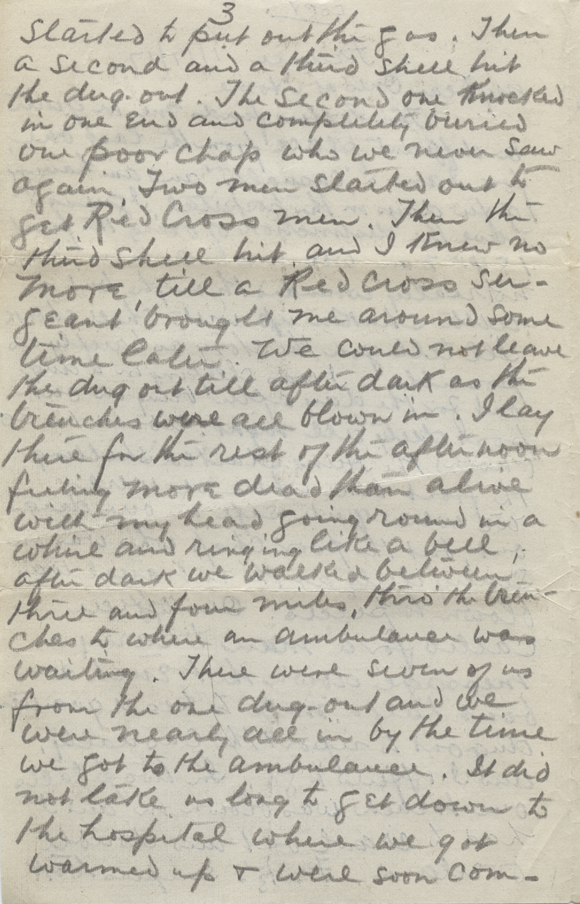 3
started to put out the gas. Then
a second and a third shell hit
the dug-out. The second one knocked
in one end and completely buried
one poor chap who we never saw
again. Two men started out to
get Red Cross men. Then the
third shell hit, and I knew no
more, till a Red Cross ser-
geant brought me around some
time later. We could not leave
the dug out till after dark as the
trenches were all blown in. I lay
there for the rest of the afternoon
feeling more dead than alive
with my head going round in a
whirl and ringing like a bell,
after dark we walked between
three and four miles, thro' the tren-
ches to where an ambulance was
waiting. There were seven of us
from the one dug-out and we
were nearly all in by the time
we got to the ambulance. It did
not take us long to get down to
the hospital where we got
warmed up + were soon com-